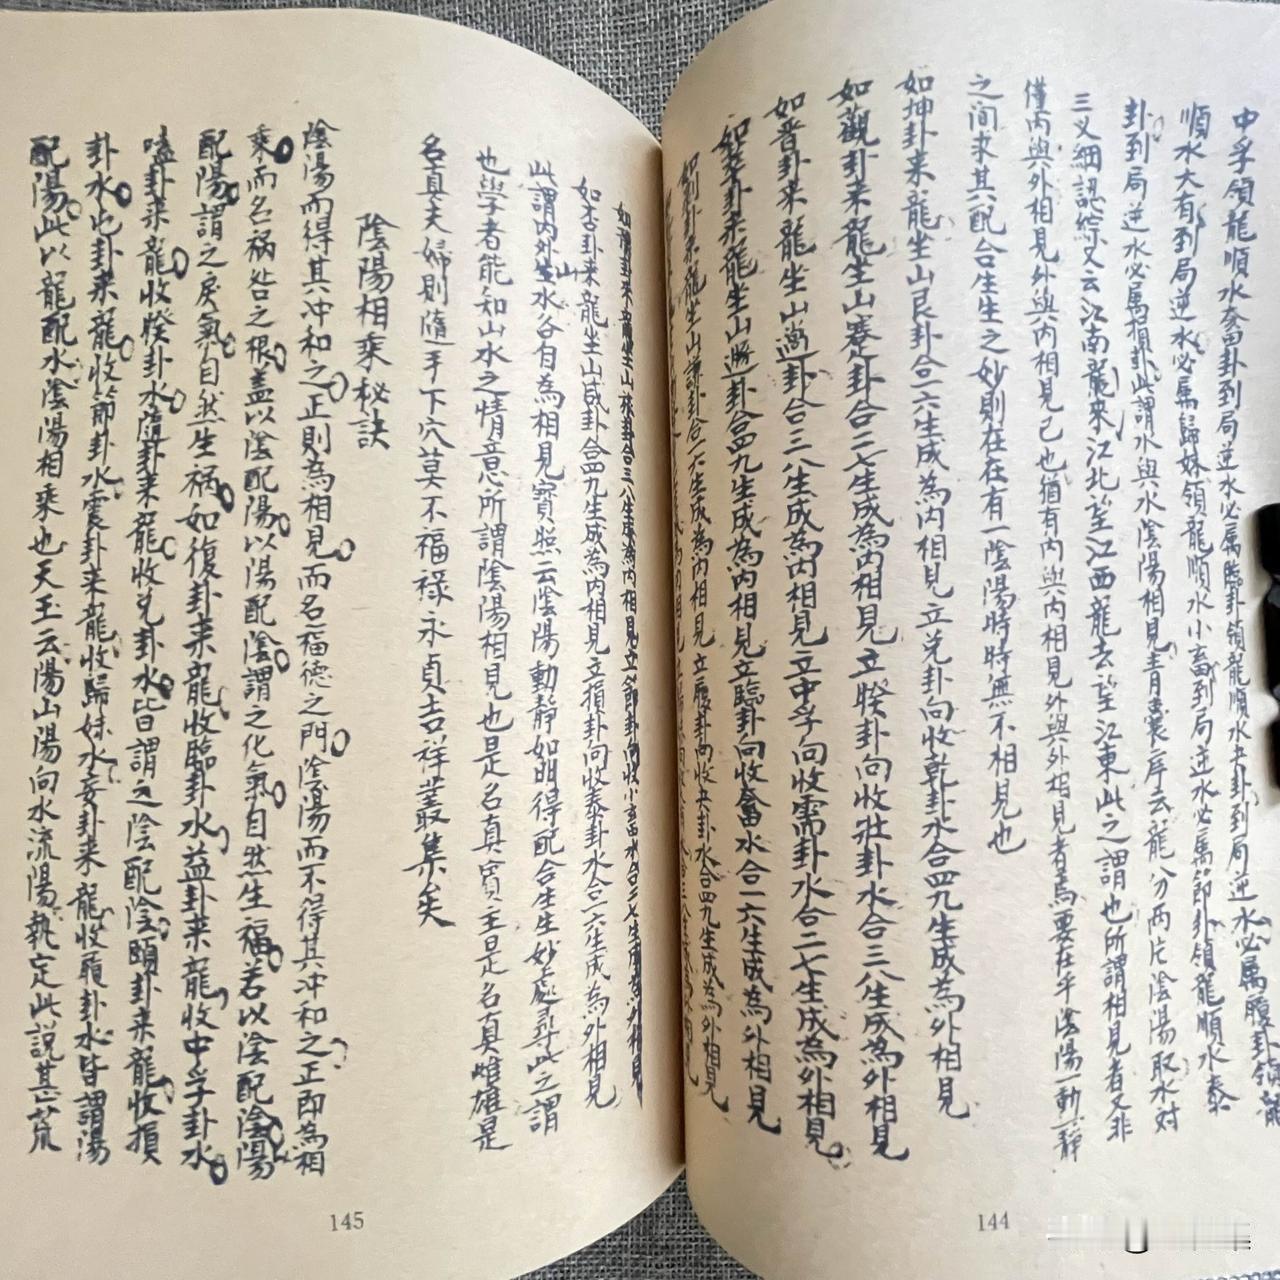 中孚領龍順水畜卦到局逆水必属臨卦領龍順水夬卦到局逆水必属履卦領龍
順水大有到局逆水必属歸妹領龍順水小畜到局逆水必属節卦領龍順水泰
卦到局逆水必属損卦此謂水與水陰陽相見青囊序云龍分兩片陰陽取水對
三义細認綜又云江南龍來江北望江西龍去望江東此之謂也所謂相見者又非
僅內與外相見外與內相見已也猶有內與內相見外與外相見者焉要在乎陰陽一動一靜
之間求其配合生生之妙則在在有一陰陽時時無不相見也
如坤卦来龍坐山艮卦合一六生成為內相見立兌卦向收乾卦水合四九生成為外相見
如觀卦来龍坐山蹇卦合二七生成為內相見立睽卦向收壯卦水合三八生成為外相見
如晋卦来龍坐山遯卦合三八生成為內相見立中孚向收需卦水合二七生成為外相見
如萃卦来龍坐山遯卦合四九生成為內相見立臨卦向收畜水合一六生成為外相見
如剝卦来龍坐山謙卦合一六生成為內相見立履卦向收夬卦水合四九生成為外相見
如豫卦来龍坐山旅卦合三八生成為內相見立節卦向收小畜水合二七生成為外相見
如否卦来龍坐山咸卦合四九生成為內相見立損卦向收泰卦水合一六生成為外相見
此謂內外山水各自為相見寶照云陰陽動靜如明得配合生生妙處尋此之謂
也學者能知山水之情意所謂陰陽相見也是名真賓主是名真雌雄是
名真夫婦則隨手下穴莫不福祿永貞吉祥叢集矣
陰陽相乘秘訣
陰陽而得其冲和之正則為相見而名福德之門陰陽而不得其冲和之正即為相
乘而名禍咎之根盖以陰配陽以陽配陰謂之化氣自然生福若以陰配陰陽
配陽謂之戾氣自然生禍如復卦来龍收臨卦水益卦来龍收中孚卦水
嗑卦来龍收睽卦水隨卦来龍收兌卦水皆謂之陰配陰頤卦来龍收損
卦水屯卦来龍收節卦水震卦来龍收歸妹水妄卦来龍收履卦水皆謂陽
配陽此以龍配水陰陽相乘也天玉云陽山陽向水流陽執定此說甚荒
145
144